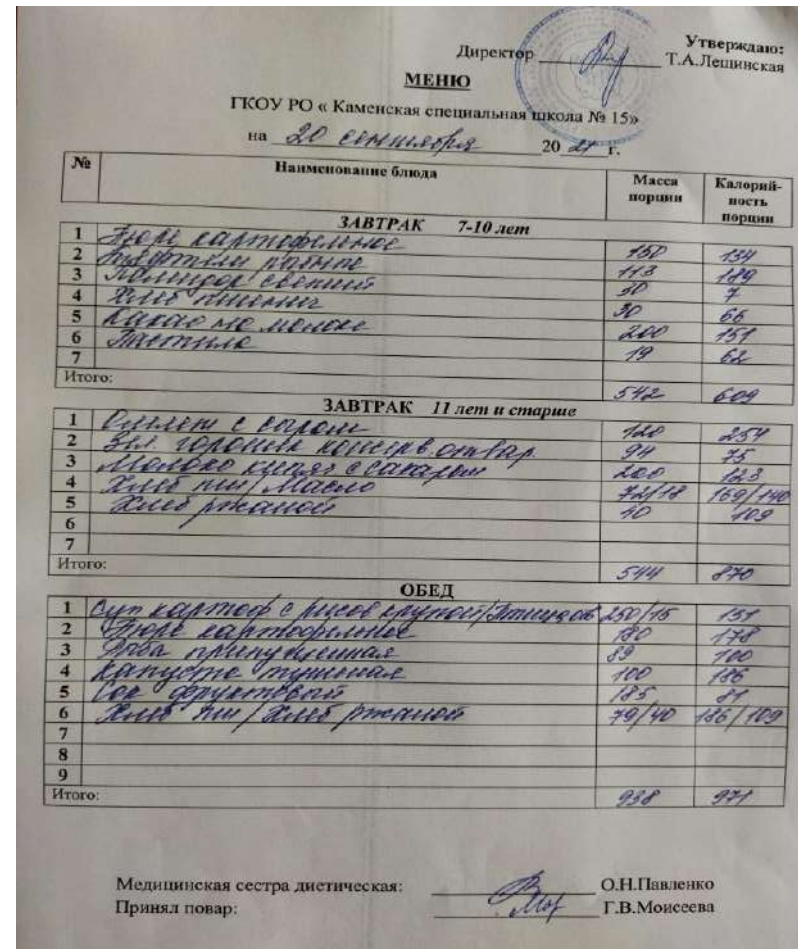 Утверждаю:
Директор Т.А.Лещинская
МЕНЮ
ГКОУ РО « Каменская специальная школа № 15»
на 20 сентября 20 21 г.
№ Наименование блюда Масса порции Калорий-ность порции
ЗАВТРАК 7-10 лет
1 Пюре картофельное 150 134
2 Тефтели рыбные 113 189
3 Помидор свежий 30 7
4 Хлеб пшенич 30 66
5 Какао на молоке 200 151
6 Пастила 19 62
7
Итого: 542 609
ЗАВТРАК 11 лет и старше
1 Омлет с сыром 120 254
2 Зел. горошек консерв. отвар. 94 75
3 Молоко кипяч с сахаром 200 123
4 Хлеб пш/Масло 72/18 169/140
5 Хлеб ржаной 40 109
6
7
Итого: 544 870
ОБЕД
1 Суп картоф с рисов крупой/ 250/15 131
2 Пюре картофельное 180 178
3 Рыба припущенная 89 100
4 Капуста тушеная 100 186
5 Сок фруктовый 185 81
6 Хлеб пш/Хлеб ржаной 79/40 186/109
7
8
9
Итого: 938 971
Медицинская сестра диетическая: О.Н.Павленко
Принял повар: Г.В.Моисеева